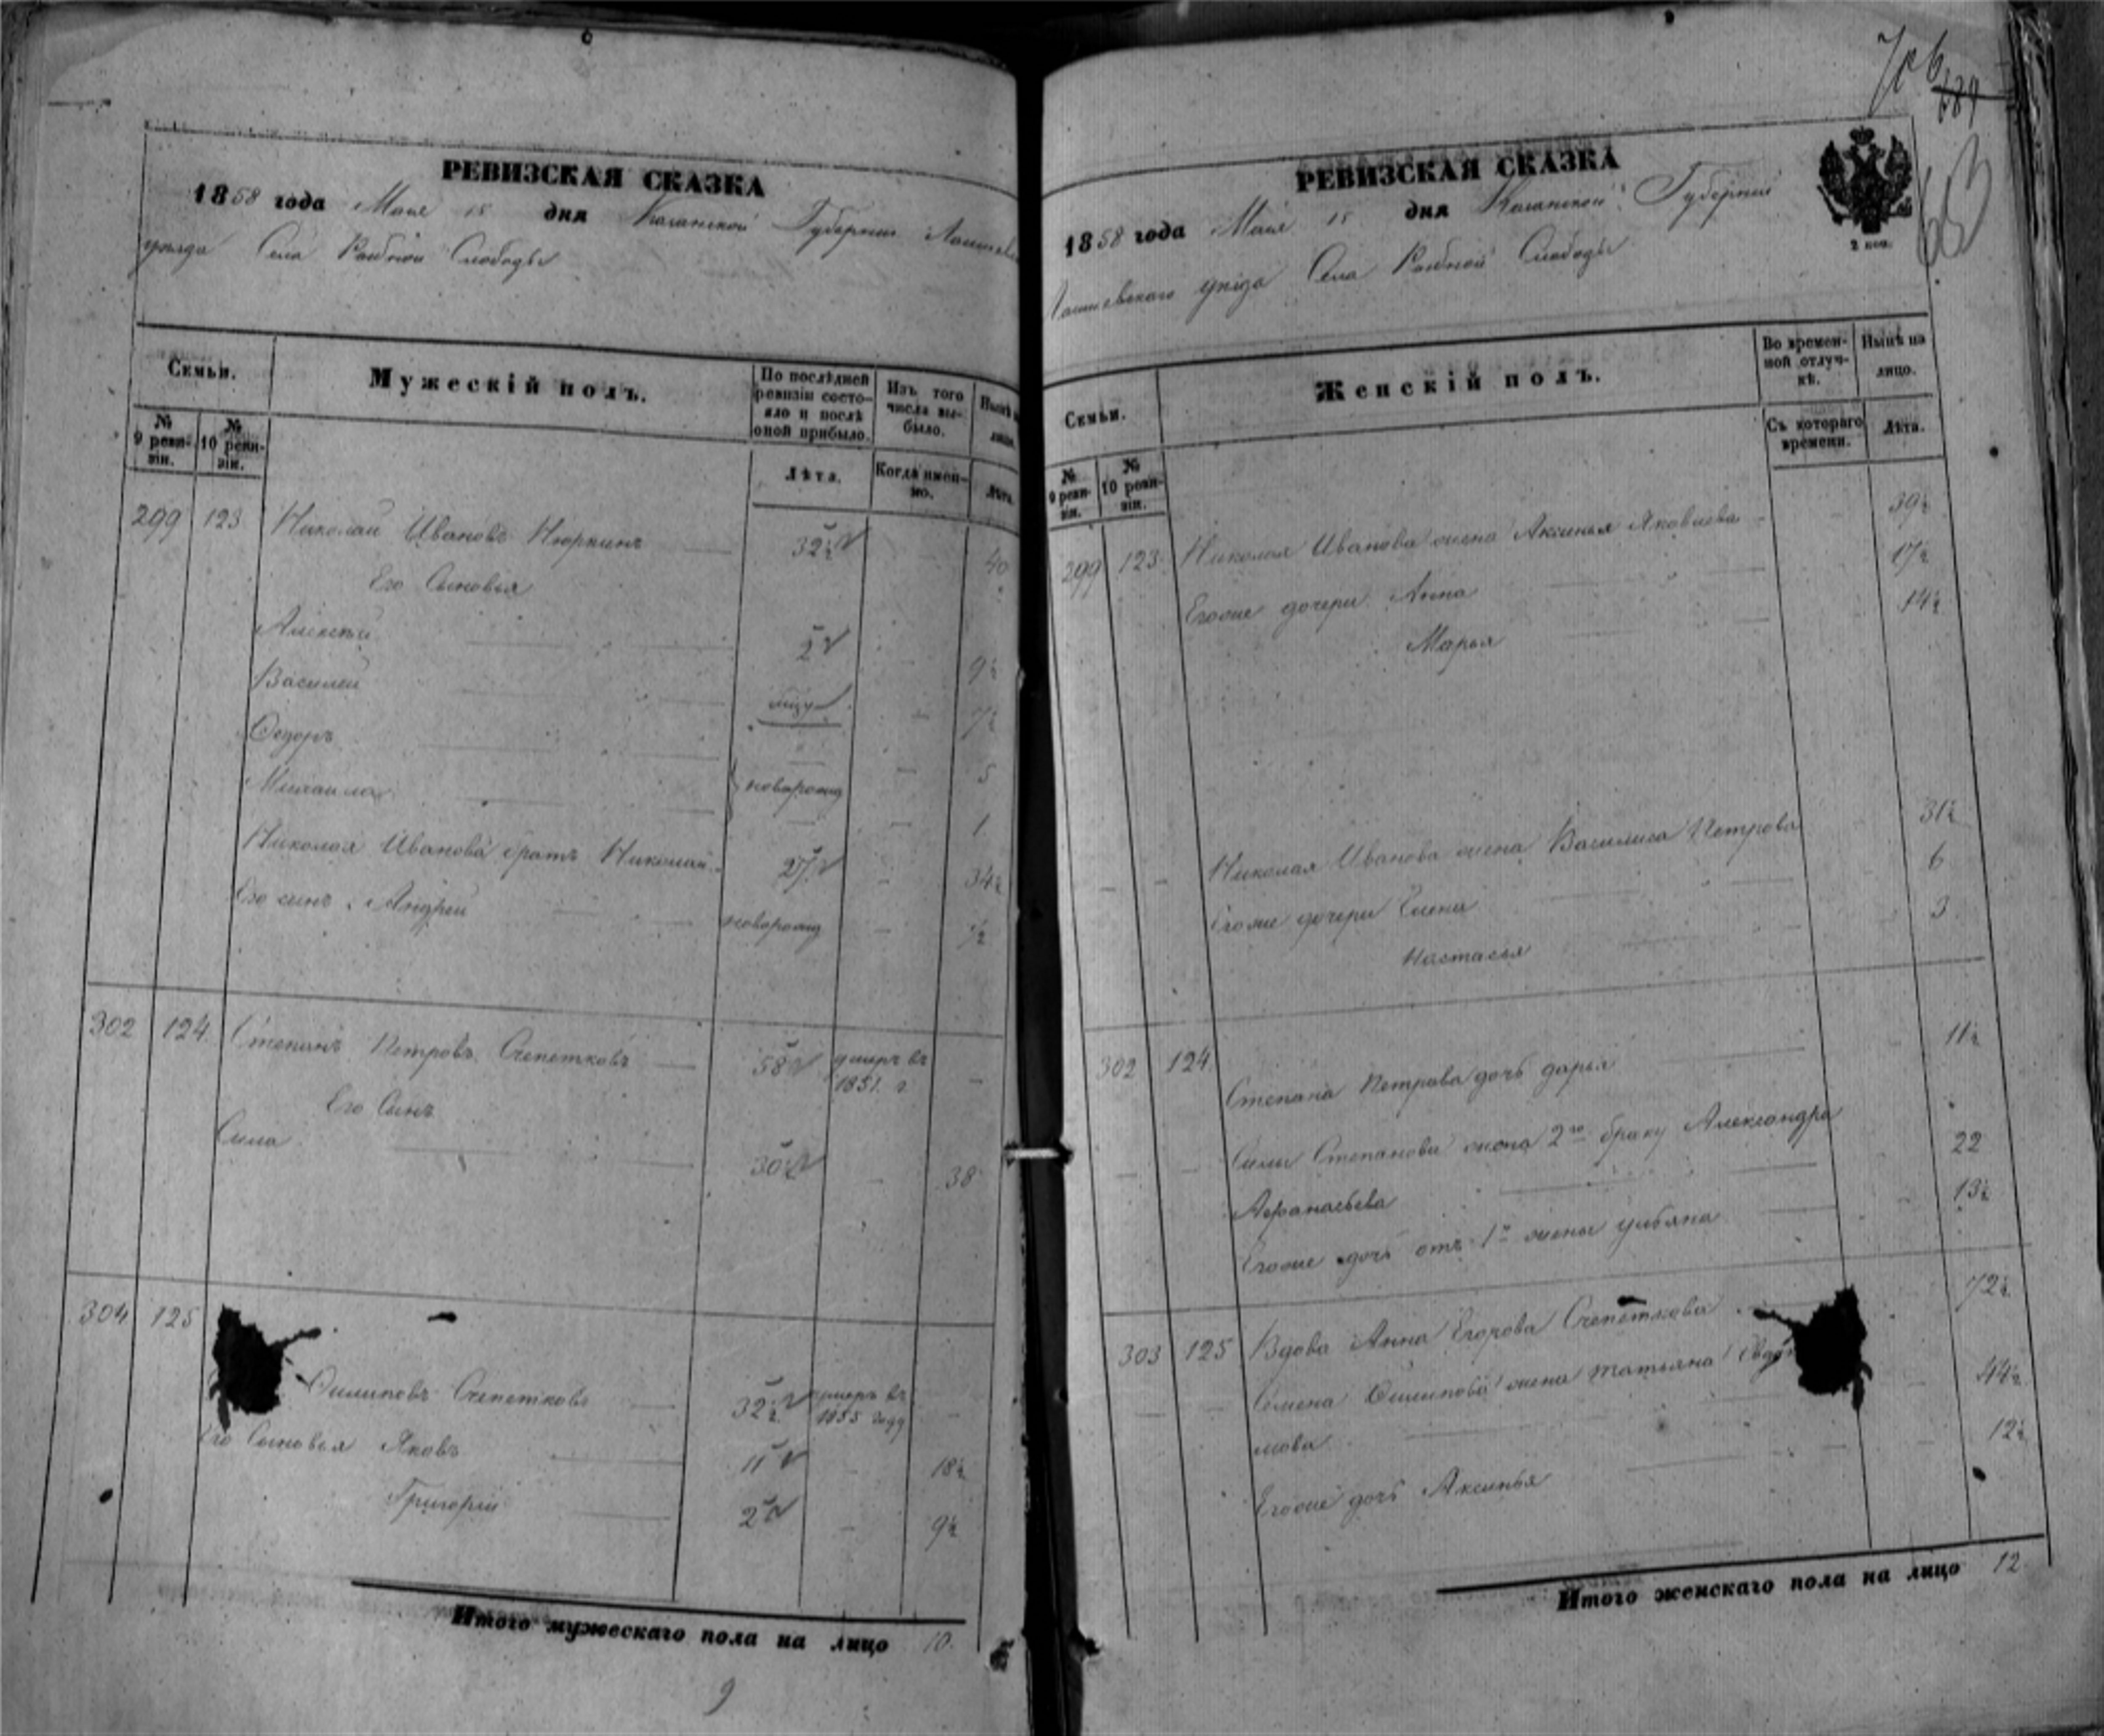 РЕВИЗСКАЯ СКАЗКА
1858 года Мая 15 дня Казанской Губернии
уезда Села Рыбной Слободы
Семьи.
Мужескій полъ.
По послѣдней ревизіи состояло и послѣ оной прибыло.
Изъ того числа выбыло.
Нынѣ на лицо.
№ 9 ревизіи.
№ 10 ревизіи.
Лѣта.
Когда именно.
Лѣта.
299 123 Николай Ивановъ 32½ 40
Его Сыновья
Алексѣй 2 9½
Василей 7½
Федоръ 5
Михаила новорожд 1
Николая Иванова братъ Николай 27 34½
Его сынъ Андрей новорожд ½
302 124 Степанъ Петровъ Счепетковъ 58 умеръ въ 1851 г. —
Его Сынъ
Сила 30 38
304 125
Филиповъ Счепетковъ 32½ умеръ въ 1855 году —
Его Сыновья Яковъ 11 18½
Григорій 2 9½
Итого мужескаго пола на лицо 10.
9
706
689
РЕВИЗСКАЯ СКАЗКА
1858 года Мая 15 дня Казанской Губернии
Лаишевскаго уѣзда Села Рыбной Слободы
2 коп.
Семьи.
Женскій полъ.
Во временной отлучкѣ.
Нынѣ на лицо.
№ 9 ревизіи.
№ 10 ревизіи.
Съ котораго времени.
Лѣта.
299 123 Николая Иванова жена Аксинья Яковлева 39½
Егоже дочери Анна 17½
Марья 14½
Николая Иванова жена Василиса Петрова 31½
Егоже дочери Елена 6
Настасья 3
302 124 Степана Петрова дочь дарья 11½
Силы Степанова жена 2го браку Александра
Афанасьева 22
Егоже дочь отъ 1й жены ульяна 13½
303 125 Вдова Анна Егорова Счепеткова 72½
Семена Филипова жена татьяна
44½
Егоже дочь Аксинья 12½
Итого женскаго пола на лицо 12.